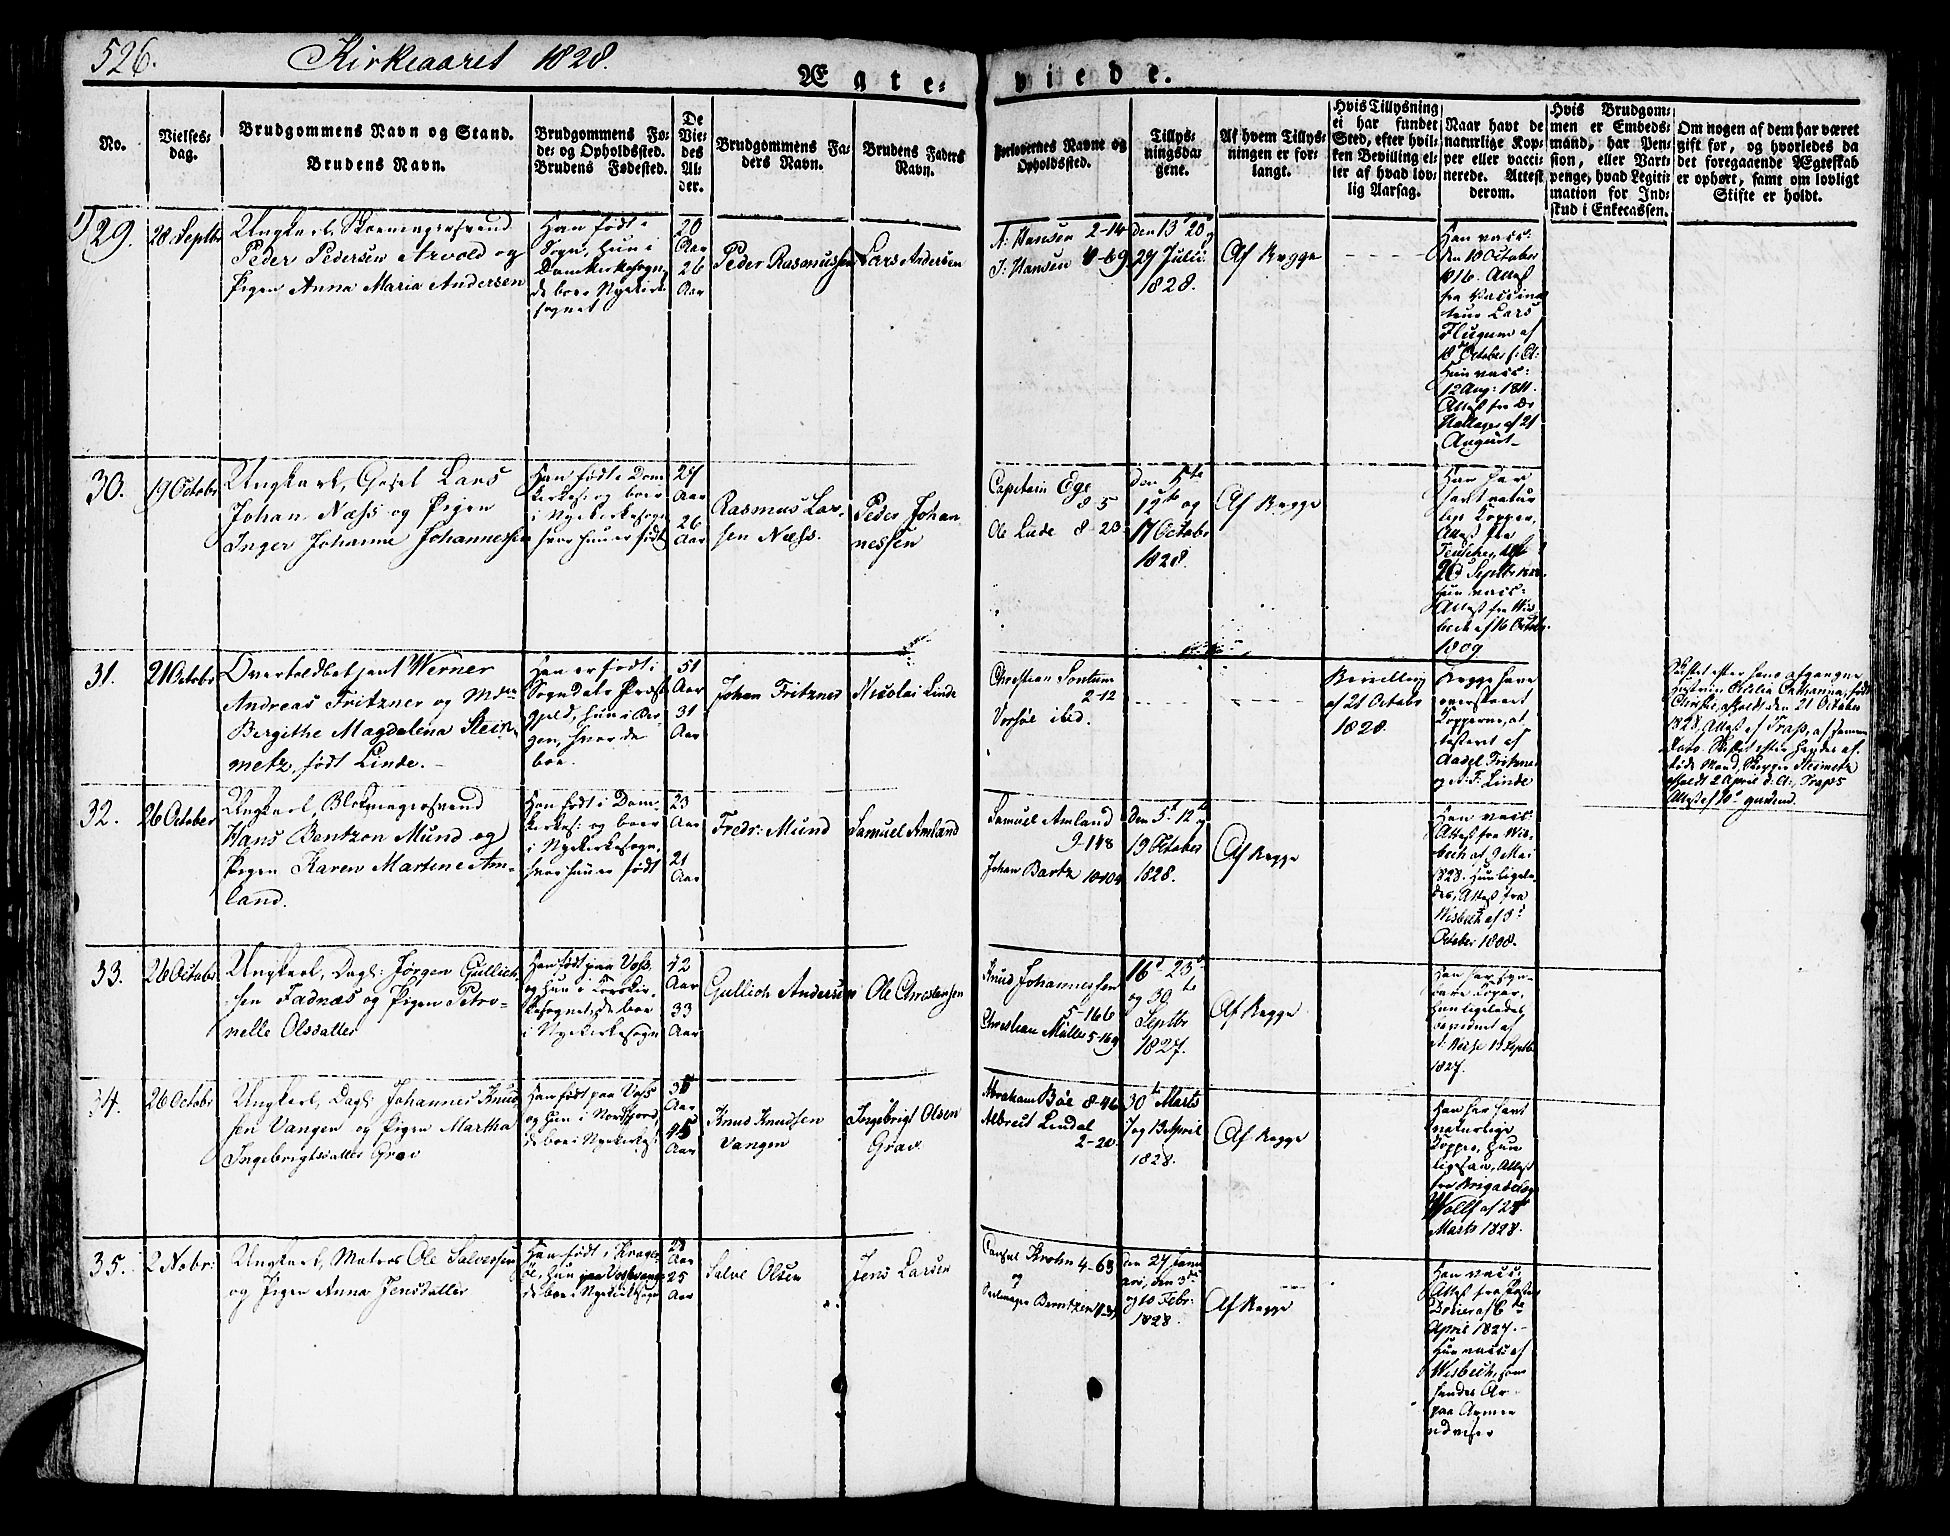 526.
Kirkeaaret 1828.
Ægte-
viede.
No.
Vielses-
dag.
Brudgommens Navn og Stand.
Brudens Navn.
Brudgommens Fø-
de- og Opholdssted.
Brudens Fødested.
De
Vie-
des
Al-
der.
Brudgommens Fa-
ders Navn.
Brudens Faders
Navn.
Forlovernes Navne og
Opholdssted.
Tillys-
ningsda-
gene.
Af hvem Tillys-
ningen er for-
langt.
Hvis Tillysning
ei har fundet
Sted, efter hvil-
ken Bevilling el-
ler af hvad lov-
lig Aarsag.
Naar havt de
naturlige Kop-
per eller vacci-
nerede. Attest
derom.
Hvis Brudgom-
men er Embeds-
mand, har Pen-
sion, eller Vart-
penge, hvad Legiti-
mation for Ind-
skud i Enkecassen.
Om nogen af dem har været
gift før, og hvorledes da
det foregaaende Ægteskab
er ophørt, samt om lovligt
Skifte er holdt.
29.
28 Septbr
Ungkarl,
Peder Pedersen Arvold og
Pigen Anna Maria Andersen
Han født i
Sogn, hun i
Domkirkesogn,
de boer Nyekirke
sognet
20
Aar
26
Aar
Peder Rasmussen
Lars Andersen
N: Hansen 2-14
J: Hansen
Den 13 20
27 Julii
1828.
Af Begge
Han vacc:
den 18 October
1816. Attest
fra Vaccina
teur Lars
Flugum af
18 October s: A:
Hun vacc:
12 Aug: 1811.
Attest fra Dr
af 21
August
30.
19 Octobr
Ungkarl, Gesel Lars
Johan Næss og Pigen
Inger Johanne Johannessen
Han født i Dom-
kirkes: og boer
i Nyekirkesogn
hvor hun er født
27
Aar
26
Aar
Rasmus Lar-
sen Næss.
Peder Johan
nessen
Capitain Ege
8 5
Ole Linde 8-23
Den 5te
12te og
17 Octobr
1828.
Af Begge
Han har
havt natur
lige Kopper,
Attest fra
26 Septbr 1828.
Hun vacc:
Attest fra Wis
bech af 16 Octobr
1809
31.
21 Octobr
Overtoldbetjent Werner
Andreas Fritzner og
Bergithe Magdalena Stein-
metz, født Linde.
Han er født i
Sogndals Præst
gjeld, hun i Ber-
gen, hvor de
boe.
51
Aar
31
Aar
Johan Fritzner
Nicolai Linde
Christian Sontum
2-12
ibid.
Bevilling
af 21 Octobr
1828.
Begge have
overstaaet
Kopperne, at-
testeret af
Fritzner
og N: F: Linde
Skiftet efter hans afgangne
Hustrue Cathrina, født
Christie, afholdt den 21 October
1828. Attest af af samme
Dato. Skiftet efter hendes af-
døde Mand, Skipper Steinmetz
afholdt 2 April d: A:,
Attest af
32.
26 October
Ungkarl, Blokmagersvend
Hans Bentzon Mund og
Pigen Karen Martine Am-
land.
Han født i Dom-
kirkes: og boer
i Nyekirkesogn,
hvor hun er født
23
Aar
21
Aar
Fredr: Mund
Samuel Amland
Samuel Amland
9-118
Johan Bartz 10-104
Den 5 12te
19 October
1828.
Af Begge
Han vacc:
Attest fra Wis-
bech af 9 Mai
1828. Hun ligele-
des, Attest fra
Wisbech af 3
October 1808.
33.
26 Octobr
Ungkarl, Dagl: Jørgen Gullich-
sen Fadnæs og Pigen Petro-
nelle Olsdatter
Han født paa Voss,
og hun i Korskir-
kesognet, de boe
i Nyekirkesogn
42
Aar
33
Aar
Gullich Andersen
Ole Christensen
Knud Johannessen
5-166
Christian Müller 5-169
16 23
og 30te
Septbr
1827.
Af Begge
Han har syn-
bare Kopar,
hun ligeledes
bevidnet af
13 Septbr
1827.
34.
26 Octobr
Ungkarl, Dagl: Johannes Knud-
sen Vangen og Pigen Martha
Ingebrigtsdatter Grav
Han født paa Voss
og hun i Nordfjord,
de boe i Nyekirkes:
35
Aar
45
Aar
Knud Knudsen
Vangen
Ingebrigt Olsen
Grav
Abraham Bøe 8-46
Albregt Lindal
2-20
30te Marts
7 og 13 April
1828.
Af Begge
Han har havt
naturlige
Kopper, hun
ligesaa, Attest
fra
Wolff af 28
Marts 1828.
35.
2 Nobr:
Ungkarl, Matros Ole Salvessen
og Pigen Anna Jensdatter
Han født i Krage-
røe, hun
de boe i Nyekirkesogn
28
Aar
25
Aar
Salve Olsen
Jens Larsen
Consul Krohn 4-63
og
Berntzen
Den 27 Janu
ari, den 3de
og 10 Febr:
1828.
Af Begge
Han vacc:
Attest fra
af 6te
April 1827.
Hun vacc: af
Wisbech, som
hendes Ar
paa Armen
udviser